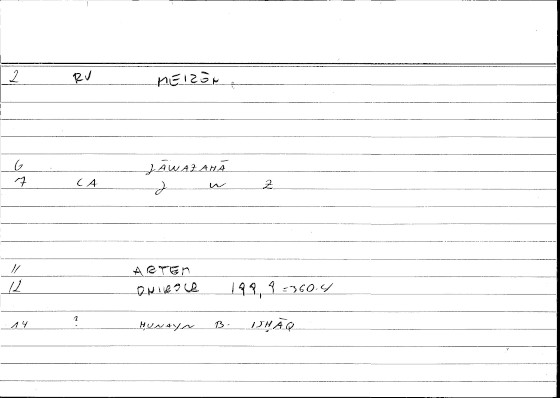 2 RV MEIZŌN
6 JĀWAZAHĀ
7 CA J W Z
11 ARTEM
12 ONIROCR 199,9 = 360.4
14 ? ḤUNAYN B. ISḤĀQ